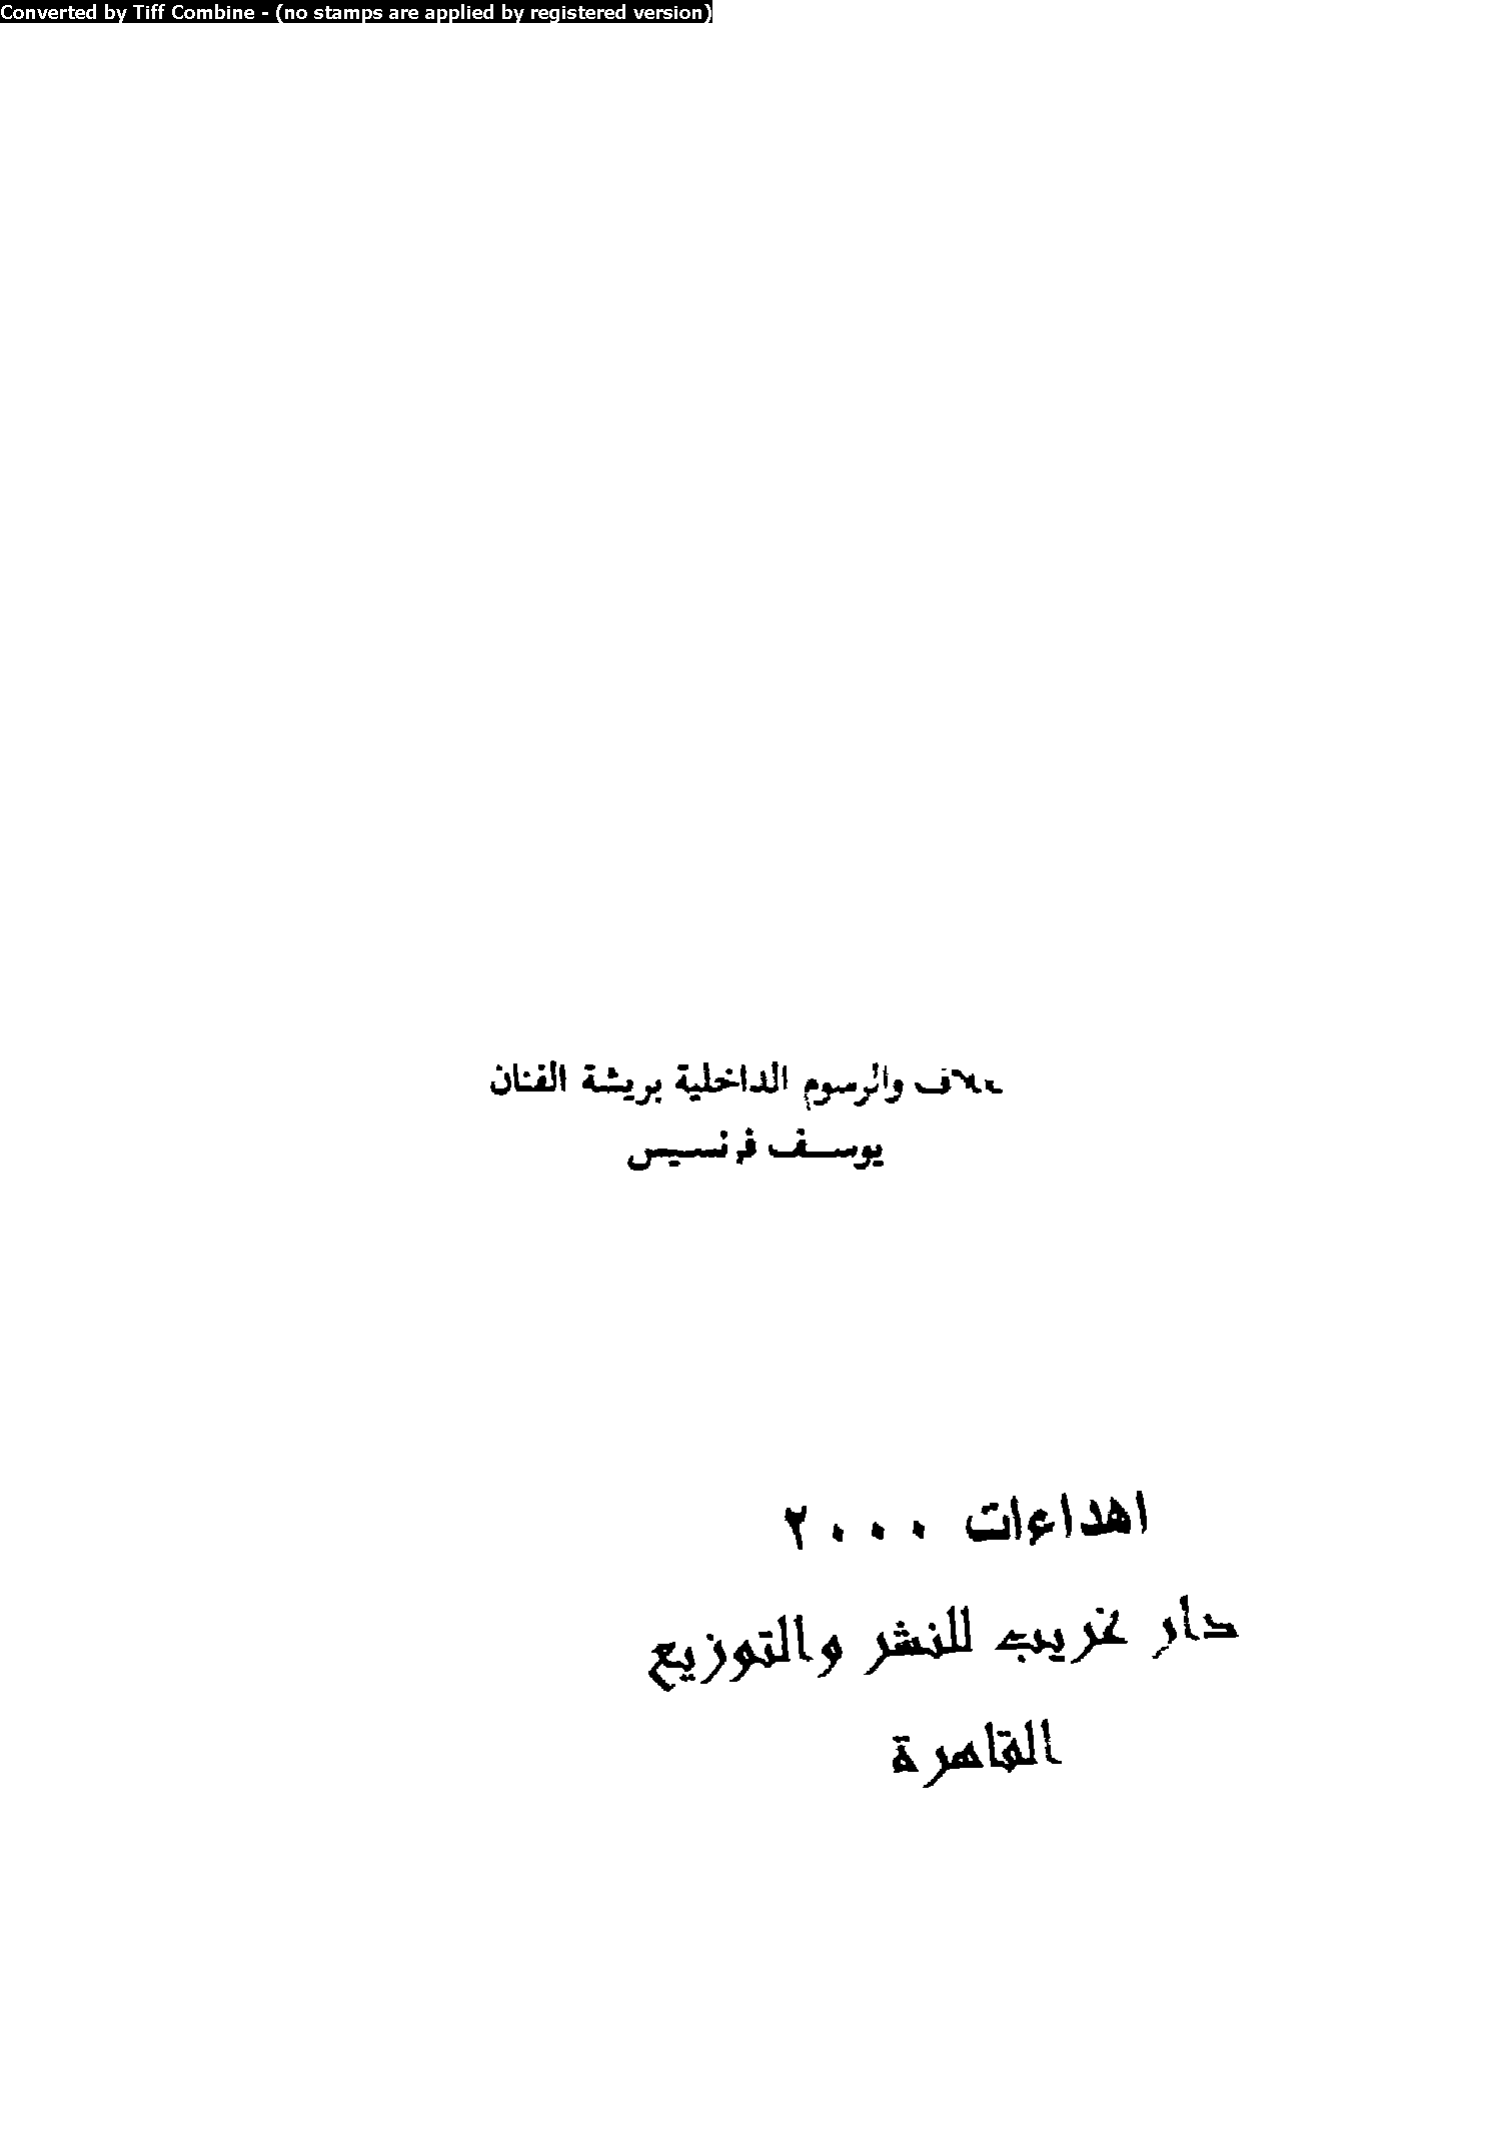 Converted by Tiff Combine - (no stamps are applied by registered version)
والرسوم الداخلية بريشة الفنان
يوسف فرنسيس
اهداءات ٢٠٠٠
دار غريب للنشر والتوزيع
القاهرة